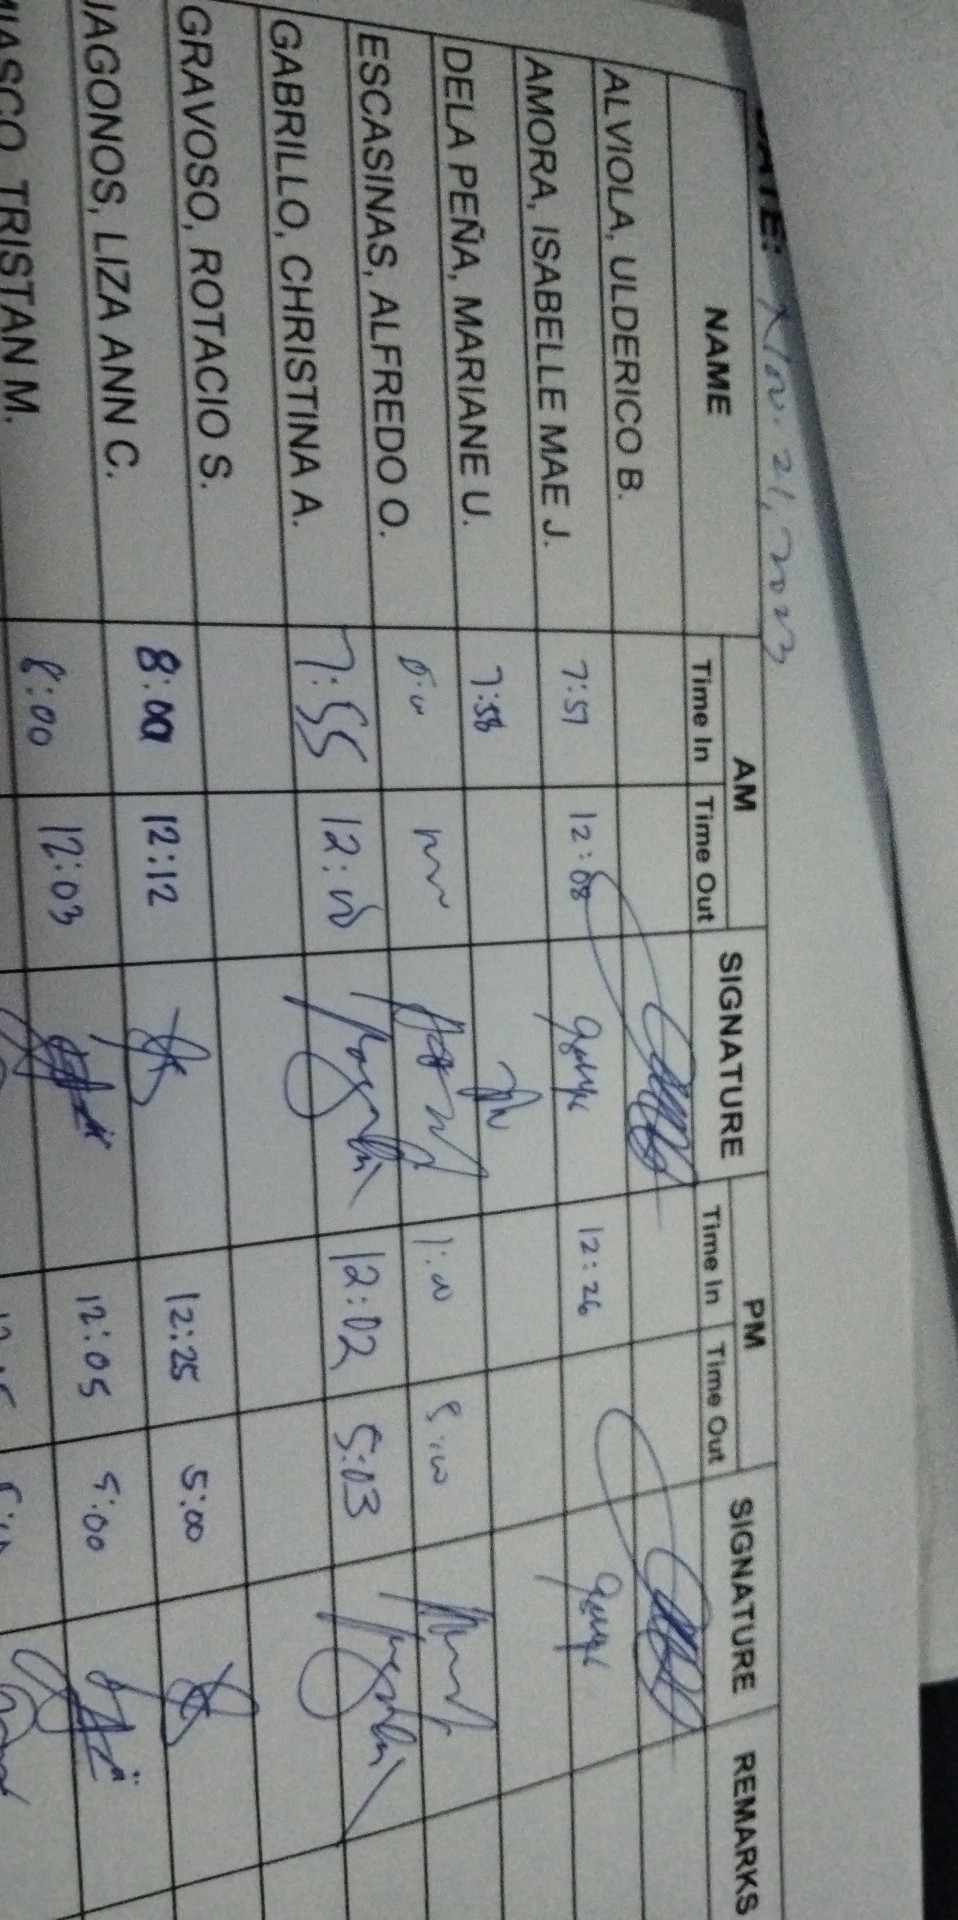 DATE: Nov. 21, 2023
NAME AM SIGNATURE PM SIGNATURE REMARKS
Time In Time Out Time In Time Out
ALVIOLA, ULDERICO B.
AMORA, ISABELLE MAE J. 7:57 12:08 12:26
DELA PEÑA, MARIANE U. 7:58
ESCASINAS, ALFREDO O. 8:00 1:00 5:00
GABRILLO, CHRISTINA A. 7:55 12:00 12:02 5:03
GRAVOSO, ROTACIO S.
JAGONOS, LIZA ANN C. 8:00 12:12 12:25 5:00
MIASCO, TRISTAN M. 8:00 12:03 12:05 5:00